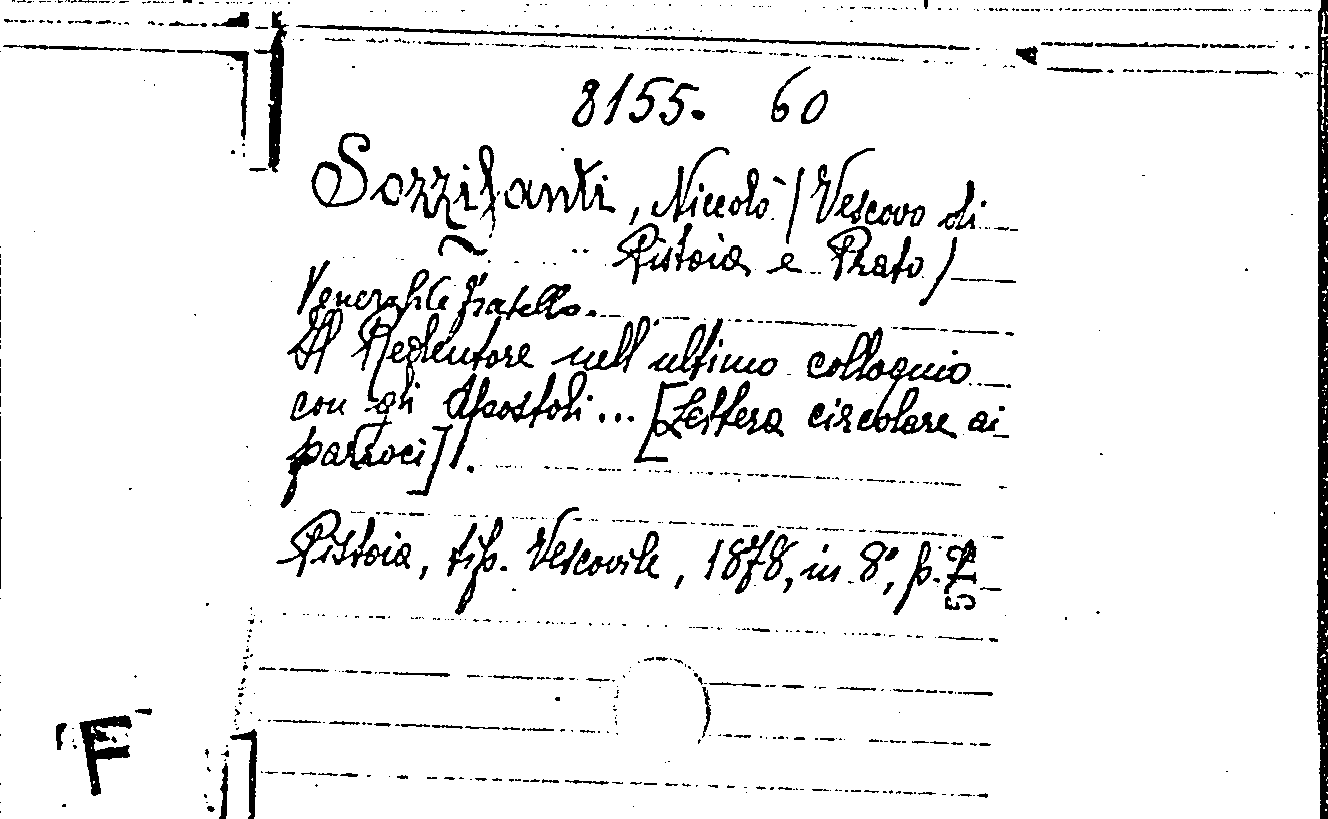 8155. 60
Sozzifanti, Niccolò (Vescovo di
Pistoia e Prato)
Venerabile fratello.
Il Redentore nell'ultimo colloquio
con gli Apostoli... [Lettera circolare ai
parroci].
Pistoia, tip. Vescovile, 1878, in 8°, p. 7
57
F